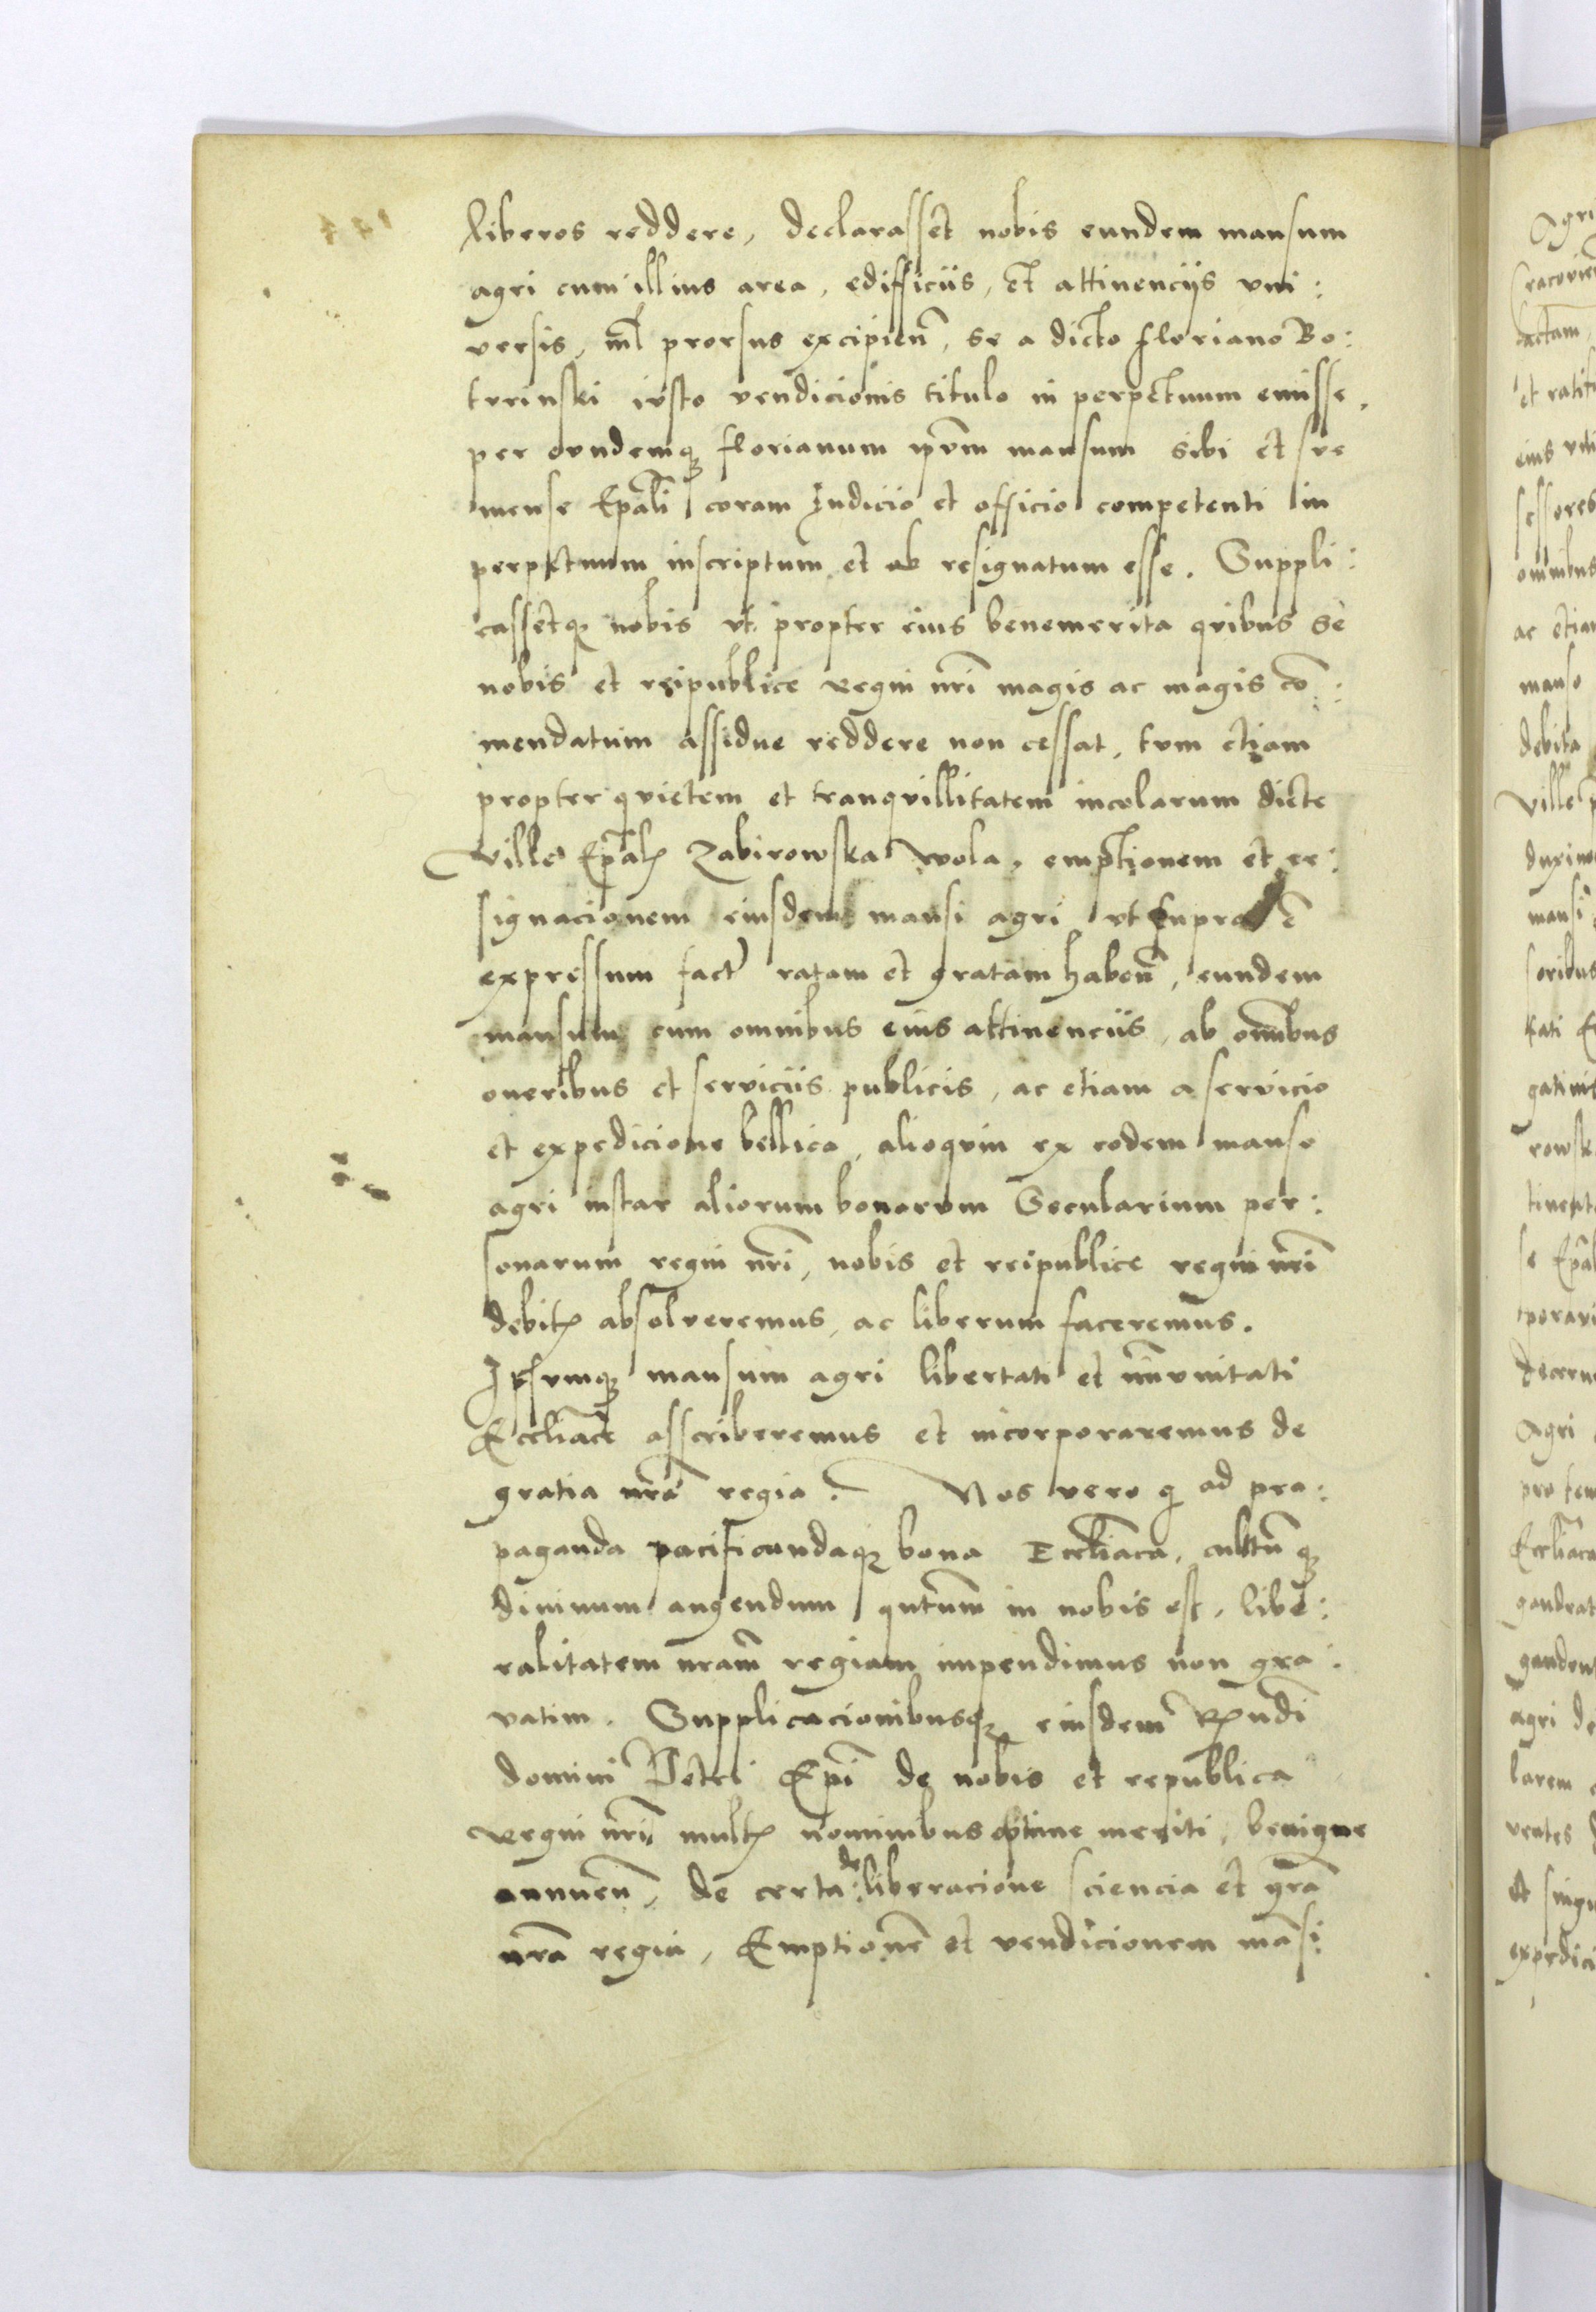 liberos reddere, declarasset nobis eundem mansum
agri cum illius area, edifficiis, et attinencijs vni:
versis, nil prorsus excipien̄, se a dicto floriano Bo:
turinski iusto vendicionis titulo in perpetuum emisse,
per eundemq̄ florianum ip̄um mansum sibi et sue
mense Ep̄ali coram Iudicio et officio competenti in
perpetuum inscriptum et ab resignatum esse. Suppli:
cassetq̄ nobis vt propter eius benemerita quibus se
nobis et reipublice regni nr̄i magis ac magis cō:
mendatum assidue reddere non cessat, tum etiam
propter quietem et tranquillitatem incolarum dicte
ville Ep̄alis Zabirowska wola, emptionem et re:
signacionem eiusdem mansi agri vt supra ē
expressum fact ratam et gratam haben̄, eundem
mansum cum omnibus eius attinenciis, ab omībus
oneribus et serviciis publicis, ac etiam a servicio
et expedicione bellica, alioquin ex eodem manso
agri instar aliorum bonorum Secularium per:
sonarum regni nr̄i, nobis et reipublice regni nr̄i
debitis absolveremus, ac liberum faceremus.
Ipsumq̄ mansum agri libertati et im̄unitati
Eccl̄iace asscriberemus et incorporaremus de
gratia nr̄a regia. Nos vero q ad pro:
paganda pacificandaq̄ bona Eccl̄iaca, cultum q̄
diuinum augendum qutum̄ in nobis est, libe:
ralitatem nr̄am regiam impendimus non gra:
vatim. Supplicacionibusq̄ eiusdem Rn̄di
domini Petri Ep̄i de nobis et republica
regni nr̄i multis nominibus optime meriti, benigne
annuen̄, de certa de:liberacione sciencia et gr̄a
nr̄a regia, Emptionē et vendicionem mansi